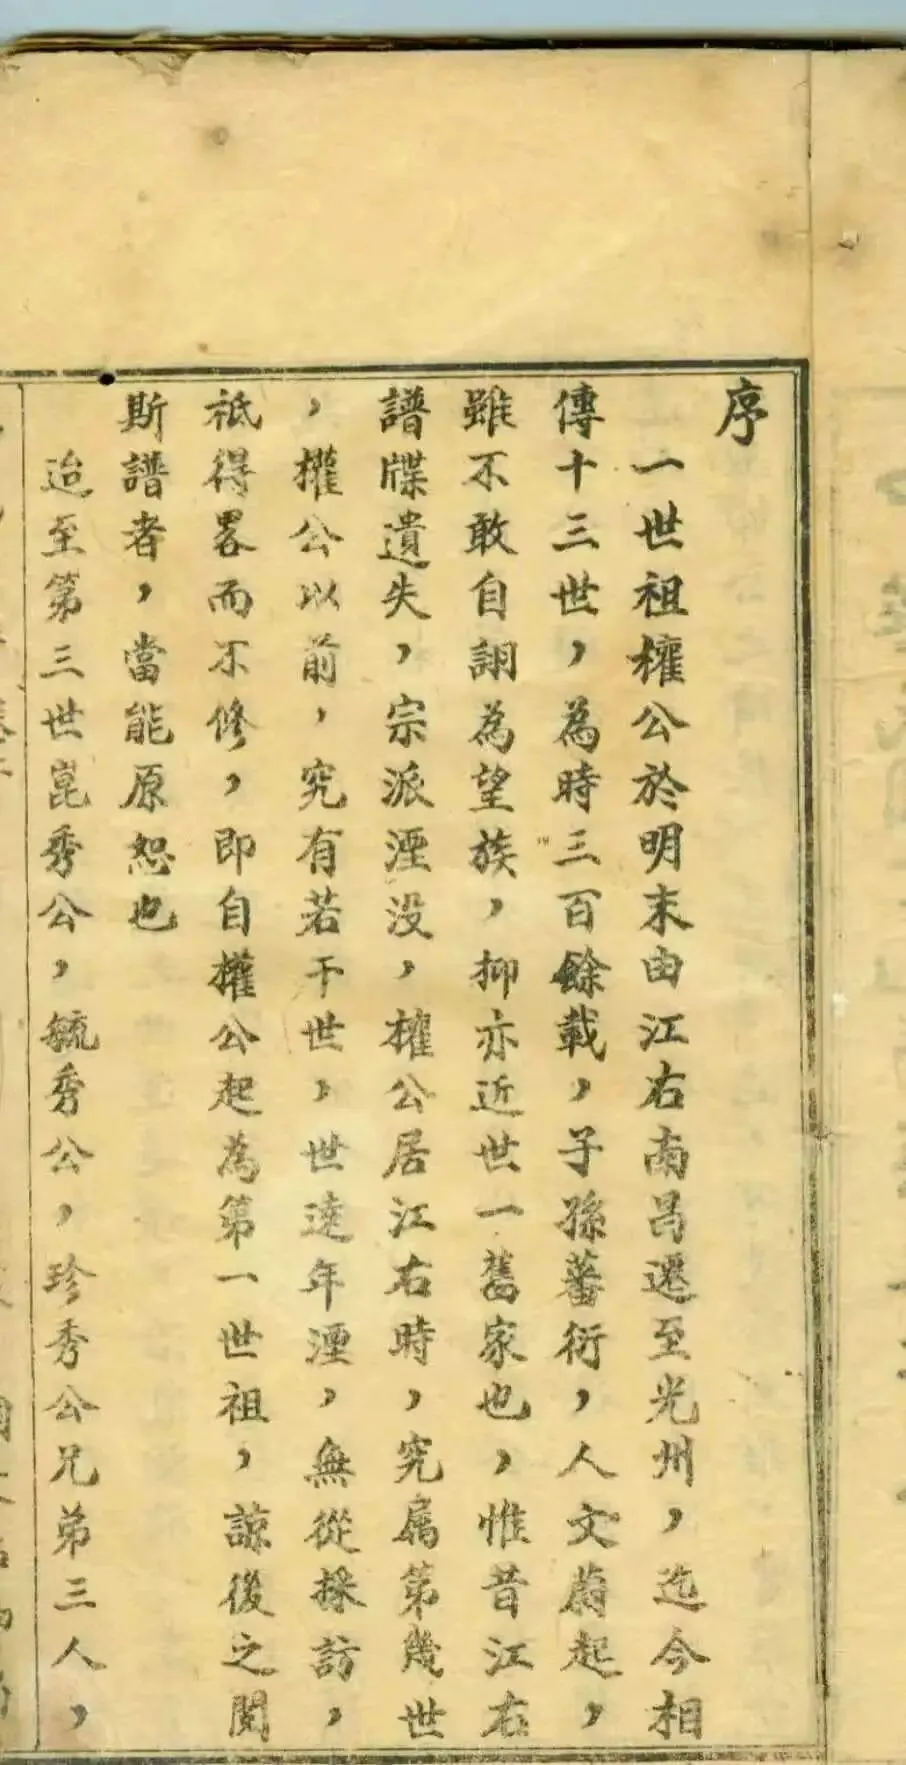 序
一世祖權公於明末由江右南昌遷至光州，迄今相
傳十三世，為時三百餘載，子孫蕃衍，人文蔚起，
雖不敢自詡為望族，抑亦近世一舊家也，惟昔江右
譜牒遺失，宗派湮没，權公居江右時，究属第幾世
，權公以前，究有若干世，世遠年湮，無從採訪，
祗得畧而不修，即自權公起為第一世祖，諒後之閱
斯譜者，當能原恕也
迨至第三世崑秀公，毓秀公，珍秀公兄弟三人，